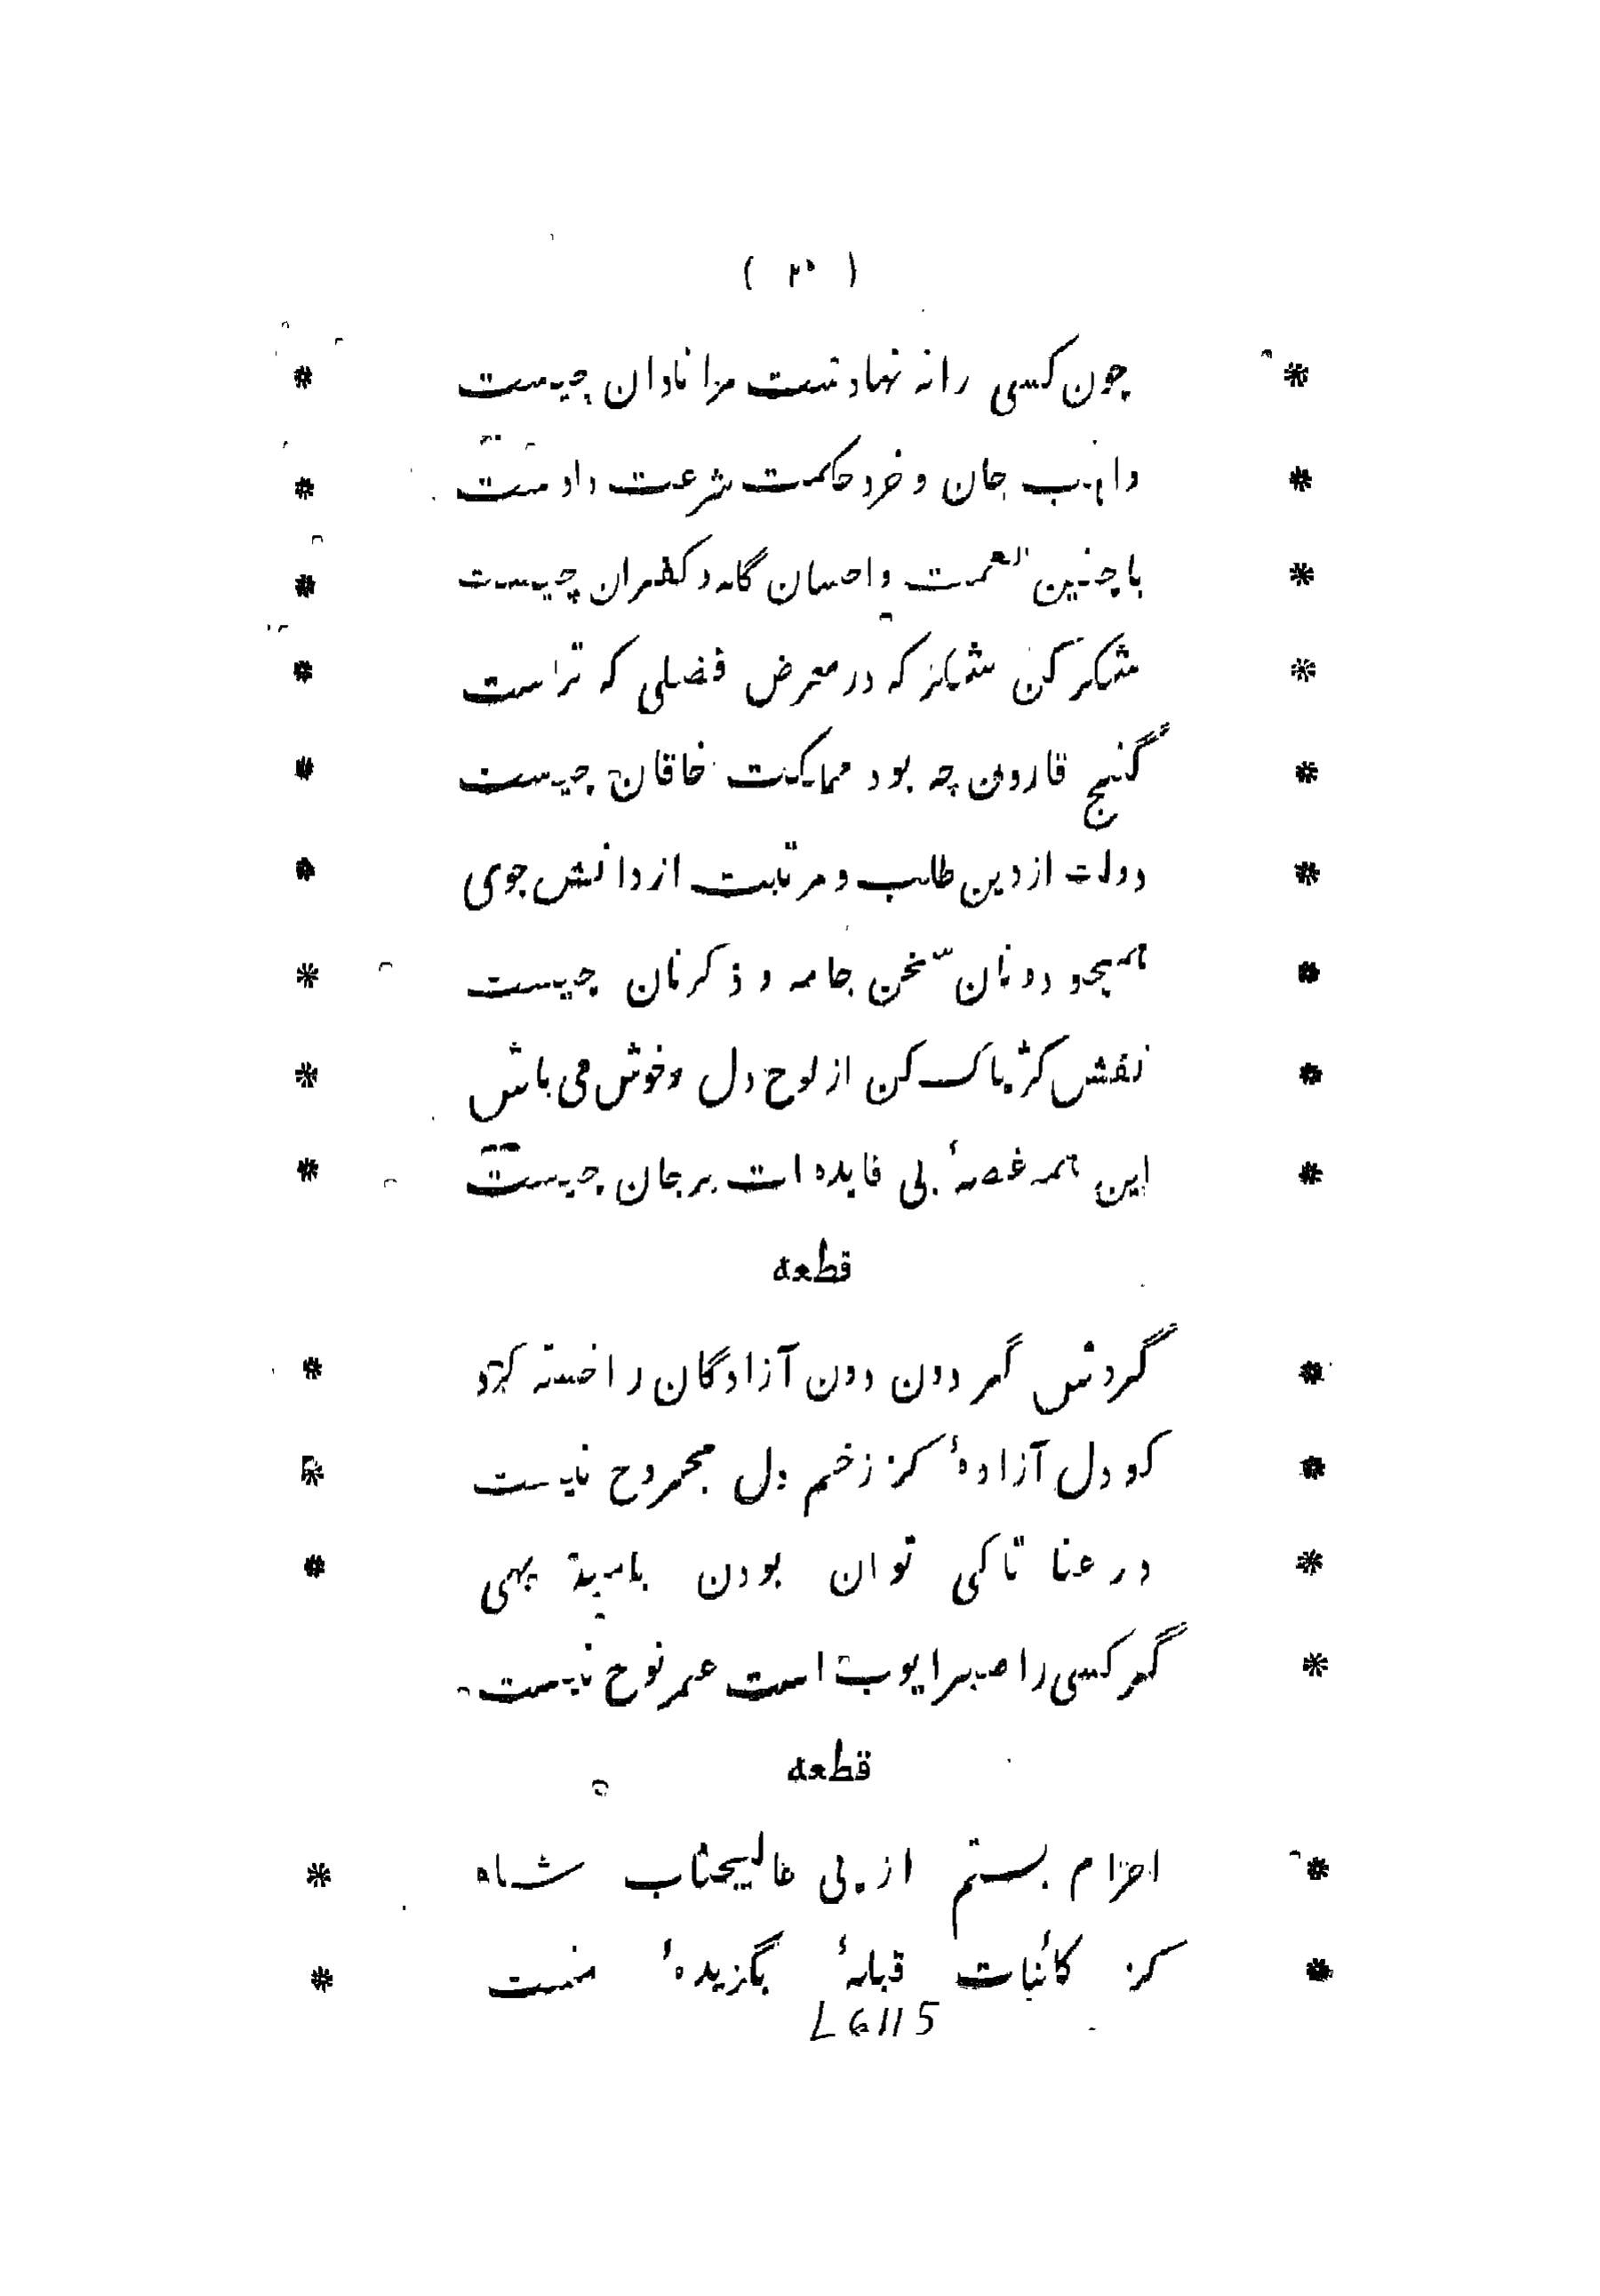 ( ۲۰ )
* چون کسی را نه نهادست مرا نادان چیست *
* واهب جان و خرد حکمت شرعت دادست *
* با چنین نعمت و احسان گله و کفران چیست *
* شکر کن شکر که در معرض فضلی که تراست *
* گنج قارون چه بود مملکت خاقان چیست *
* دولت از دین طلب و مرتبت از دانش جوی *
* همچو دونان سخن جامه و ذکر نان چیست *
* نقش کژ پاک کن از لوح دل و خوش می باش *
* این همه غصهٔ بی فایده ات بر جان چیست *
قطعه
* گردش گردون دون آزادگان را خسته کرد *
* کو دل آزادهٔ کز زخم دل مجروح نیست *
* در عنا تا کی توان بودن بامید بهی *
* گر کسی را صبر ایوب است عمر نوح نیست
قطعه
* احرام بستم از پی عالیجناب شاه *
* کز کائنات قبلهٔ بگزیدهٔ منست *
L6115